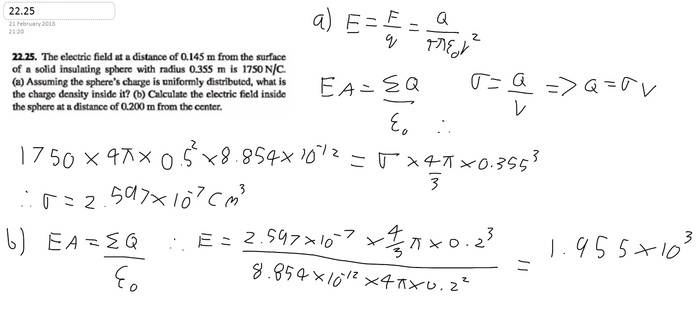 22.25
21 February 2018
21:20
22.25. The electric field at a distance of 0.145 m from the surface
of a solid insulating sphere with radius 0.355 m is 1750 N/C.
(a) Assuming the sphere's charge is uniformly distributed, what is
the charge density inside it? (b) Calculate the electric field inside
the sphere at a distance of 0.200 m from the center.
a) E = F/q = Q/4πε₀r²
EA = ΣQ/ε₀ ∴ σ = Q/V => Q = σV
1750 × 4π × 0.5² × 8.854 × 10⁻¹² = σ × 4/3 π × 0.355³
∴ σ = 2.597 × 10⁻⁷ C m³
b) EA = ΣQ/ε₀ ∴ E = 2.597 × 10⁻⁷ × 4/3 π × 0.2³ / 8.854 × 10⁻¹² × 4π × 0.2² = 1.955 × 10³